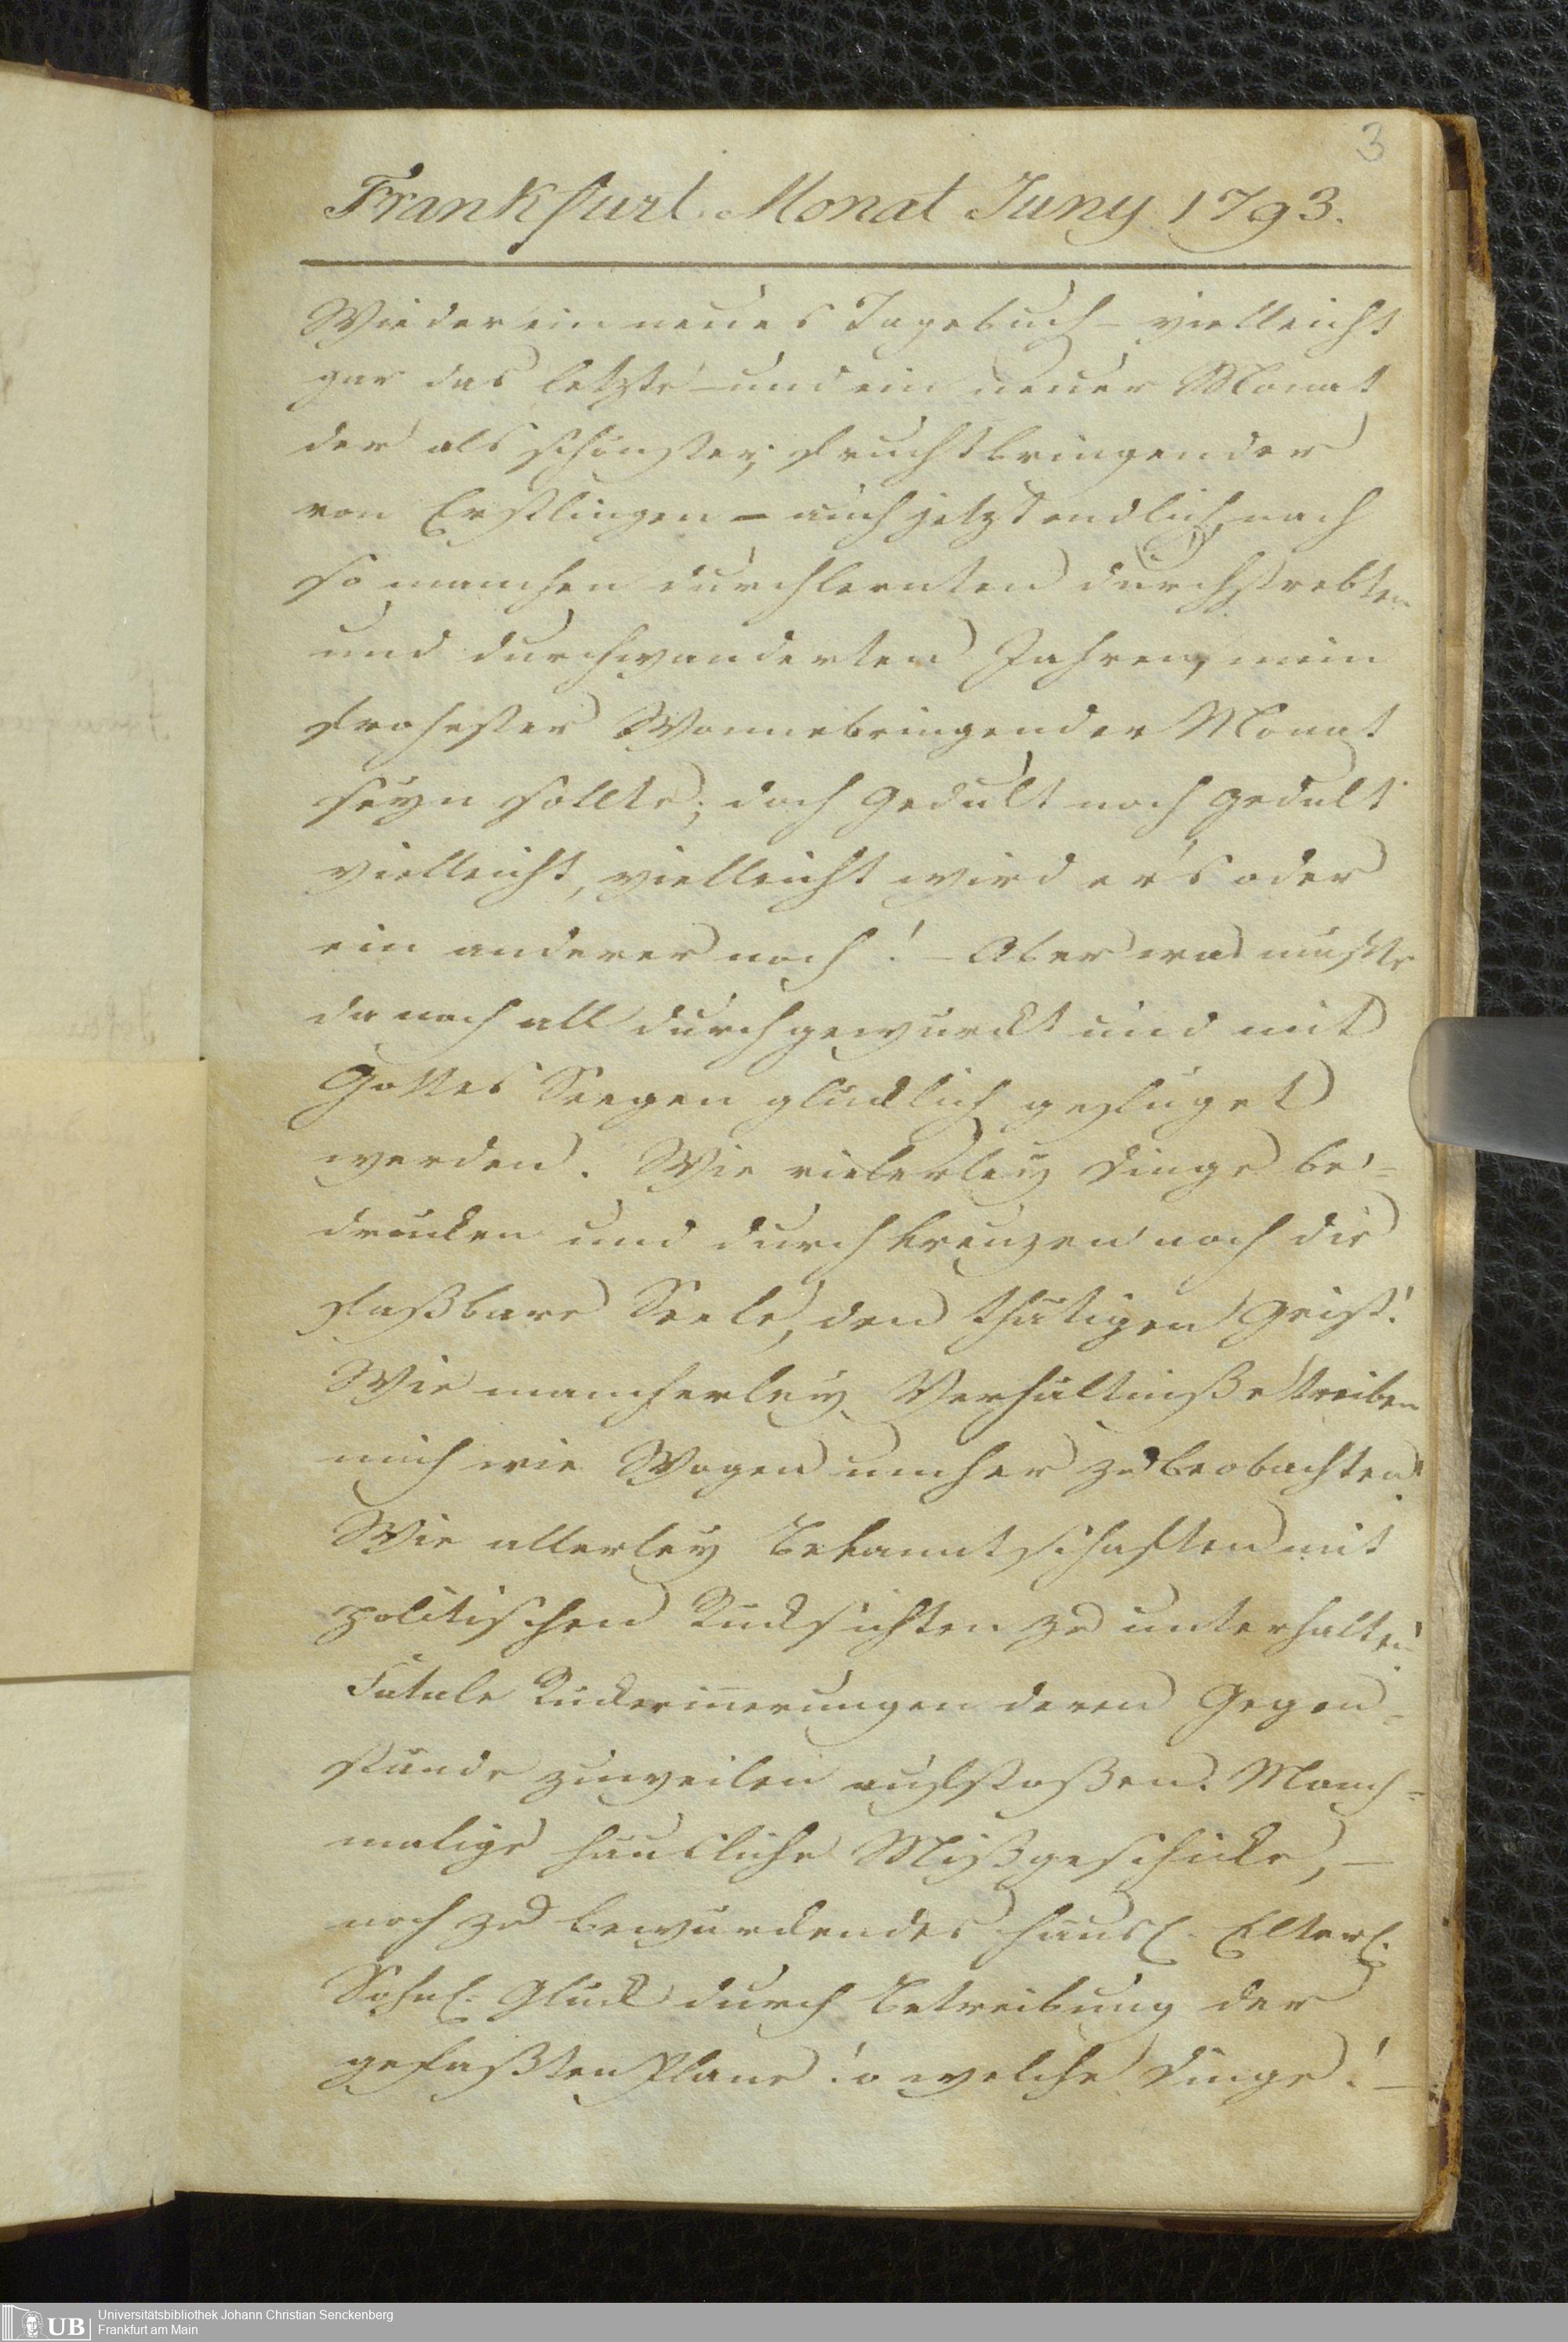 3
Frankfurt. Monat Juny 1793.
Wieder ein neues Tagebuch – vielleicht
gar das letzte – und ein neuer Monat
der als schönster, fruchtbringender
von Erstlingen – auch jetzt endlich, nach
so manchen durchlernten durchstrebten
und durchwanderten Jahren, mein
frohester Wonnebringender Monat
seyn sollte; doch Gedult noch Gedult
vielleicht, vielleicht wird er's oder
ein anderer noch! – Aber was müßte
da noch all durchgewürckt und mit
Gottes Seegen glücklich gefüget
werden. Wie vielerley Dinge be=
drücken und durchkreuzen noch die
faßbare Seele, den thätigen Geist!
Wie mancherley Verhältniße treiben
mich wie Wogen umher zu beobachten!
Wie allerley Bekanntschaften mit
politischen Rücksichten zu unterhalten
Fatale Rückerinerungen deren Gegen=
stände zuweilen aufstoßen. Manch=
malige häusliche Mißgeschicke, –
noch zu bewürckendes häusl. Elterl.
Sohnl. Glück durch Betreibung der
gefaßten Plane! o welche Dinge! –
UB
Universitätsbibliothek Johann Christian Senckenberg
Frankfurt am Main